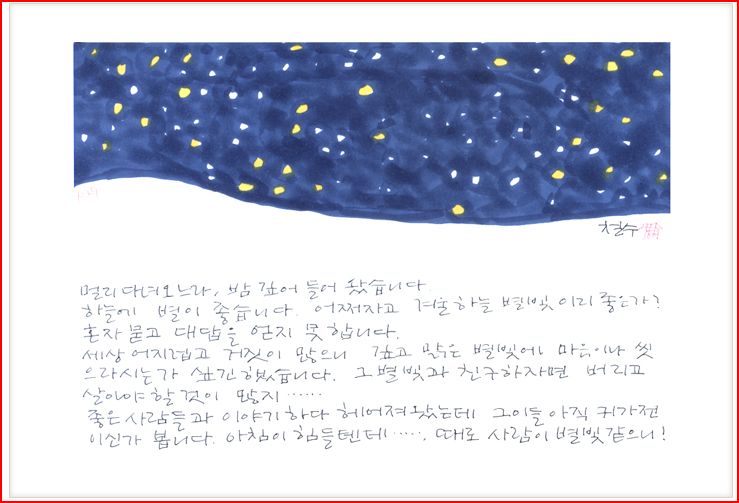 철수
멀리 다녀오느라, 밤 깊어 들어 왔습니다.
하늘에 별이 좋습니다. 어쩌자고 겨울하늘 별빛 이리 좋은가?
혼자 묻고 대답을 얻지 못합니다.
세상 어지럽고 거짓이 많으니 깊고 맑은 별빛에나 마음이나 씻
으라시는가 싶긴 했습니다. 그 별빛과 친구하자면 버리고
살아야 할 것이 많지 ......
좋은 사람들과 이야기 하다 헤어져 왔는데 그이들 아직 귀가전
이신가 봅니다. 아침이 힘들텐데 ....., 때로 사람이 별빛 같으니!